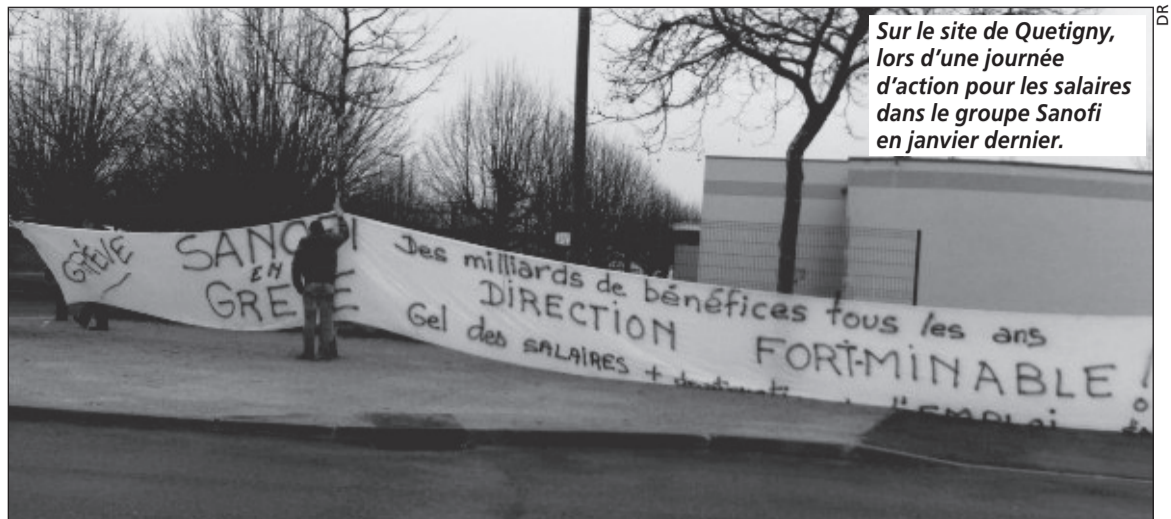 Sur le site de Quetigny,
lors d'une journée
d'action pour les salaires
dans le groupe Sanofi
en janvier dernier.
DR
GRÈVE
SANOFI
EN
GRÈVE
Des milliards de bénéfices tous les ans
DIRECTION FORT-MINABLE !
Gel des SALAIRES +
l'EMPLOI